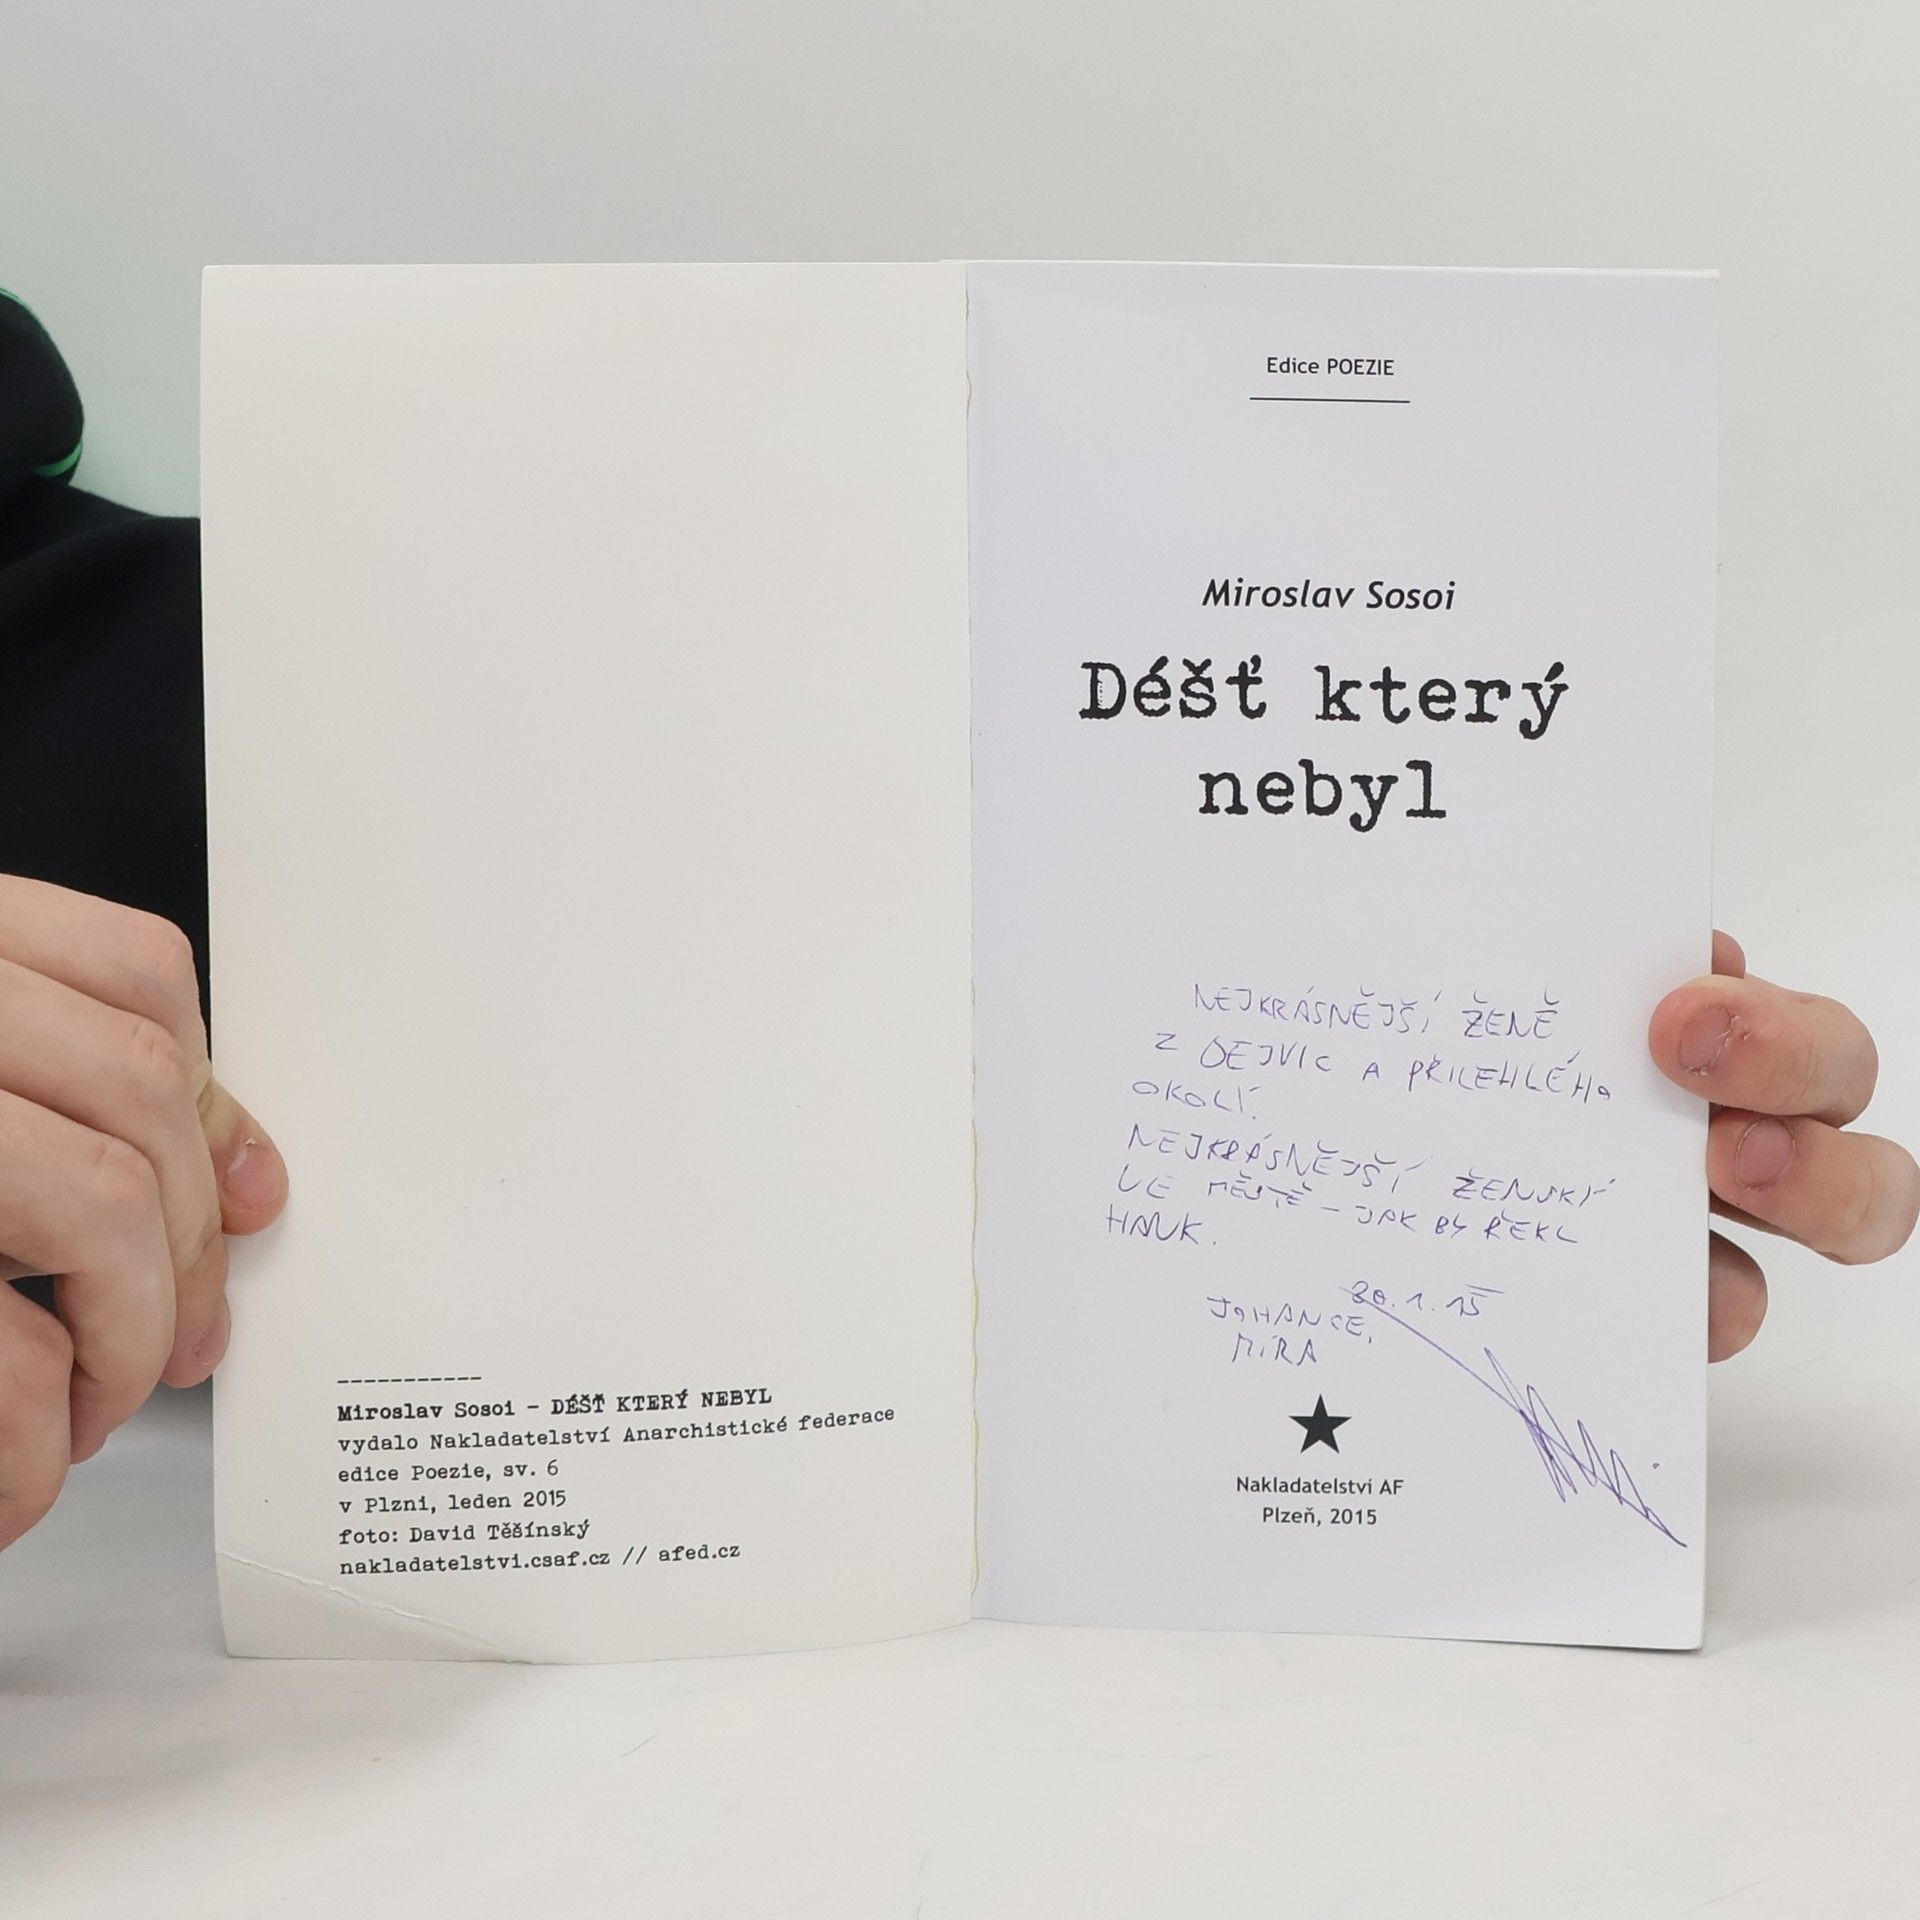 -----------
Miroslav Sosoi - DÉŠŤ KTERÝ NEBYL
vydalo Nakladatelství Anarchistické federace
edice Poezie, sv. 6
v Plzni, leden 2015
foto: David Těšínský
nakladatelstvi.csaf.cz // afed.cz
Edice POEZIE
Miroslav Sosoi
Déšť který
nebyl
NEJKRÁSNĚJŠÍ ŽENĚ
Z DEJVIC A PŘILEHLÉHO
OKOLÍ.
NEJKRÁSNĚJŠÍ ŽENSKÝ
VE MĚSTĚ – JAK BY ŘEKL
HANK.
30.1.15
JOHANCE,
MÍRA
Nakladatelství AF
Plzeň, 2015